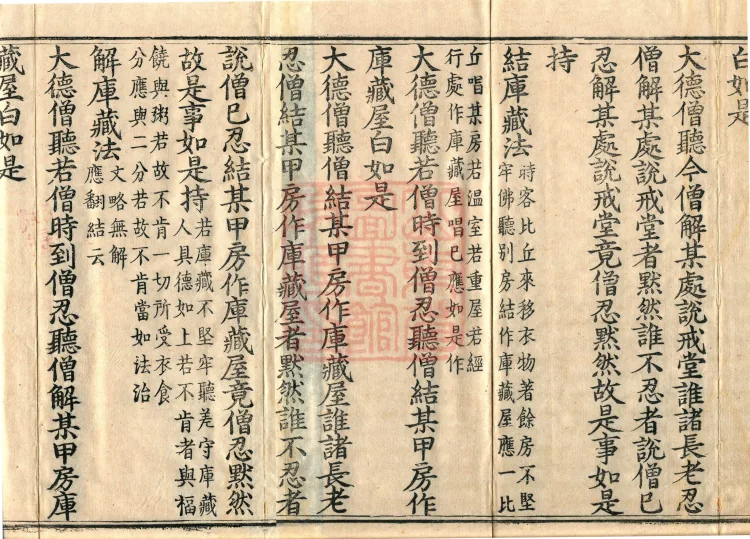 白如是
大德僧聽今僧解某處說戒堂誰諸長老忍
僧解某處說戒堂者黙然誰不忍者說僧已
忍解某處說戒堂竟僧忍黙然故是事如是
持
結庫藏法
時客比丘來移衣物著餘房不堅
牢佛聽別房結作庫藏屋應一比
丘唱某房若溫室若重屋若經
行處作庫藏屋唱已應如是作
大德僧聽若僧時到僧忍聽僧結某甲房作
庫藏屋白如是
大德僧聽僧結某甲房作庫藏屋誰諸長老
忍僧結某甲房作庫藏屋者黙然誰不忍者
說僧已忍結某甲房作庫藏屋竟僧忍黙然
故是事如是持
若庫藏不堅牢聽差守庫藏
人具德如上若不肯者與福
饒與粥若故不肯一切所受衣食
分應與二分若故不肯當如法治
解庫藏法
文略無解
應翻結云
大德僧聽若僧時到僧忍聽僧解某甲房庫
藏屋白如是